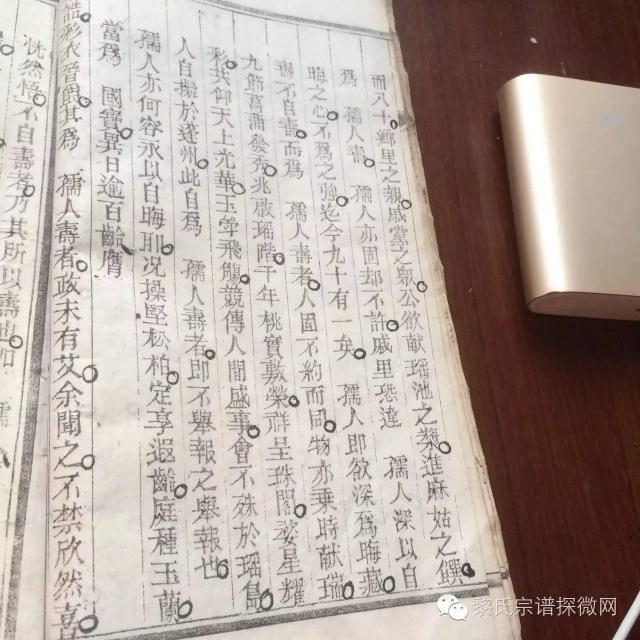 而八十鄉里之親戚黨之與公欲獻瑤池之桃進麻姑之饌
爲 孺人壽 孺人亦固却不許戚里恐違 孺人深以自
晦之心不爲之強迄今九十有一矣 孺人即欲深爲晦藏
壽不自壽而爲 孺人壽者人固不約而同物亦乘時獻瑞
九節菖蒲發秀兆啟瑤階千年桃實敷榮祥呈珠閣婺星耀
彩共仰天上光華王母飛觴競傳人間盛事會不殊於瑤島
人自擬於蓬州此自爲 孺人壽者即不舉報之與報也
孺人亦何容永以自晦耶况操堅松柏定享遐齡庭種玉蘭
當爲 國寶異日逾百齡膺
誥彩衣晉爵其爲 孺人壽者政未有艾余聞之不禁欣然喜
恍然悟不自壽者乃其所以壽也
黎氏宗谱探微网